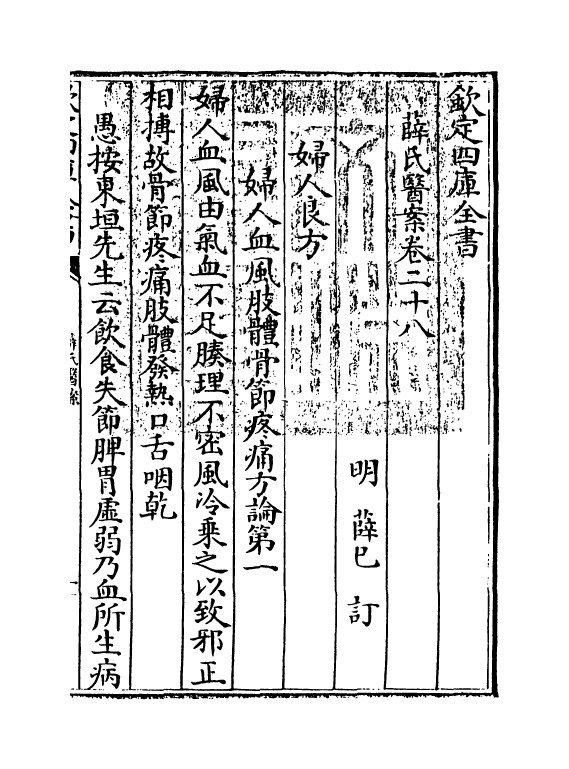 欽定四庫全書
薛氏醫案卷二十八
明 薛已 訂
婦人良方
婦人血風肢體骨節疼痛方論第一
婦人血風由氣血不足腠理不密風冷乗之以致邪正
相搏故骨節疼痛肢體發熱口舌咽乾
愚按東垣先生云飲食失節脾胃虛弱乃血所生病